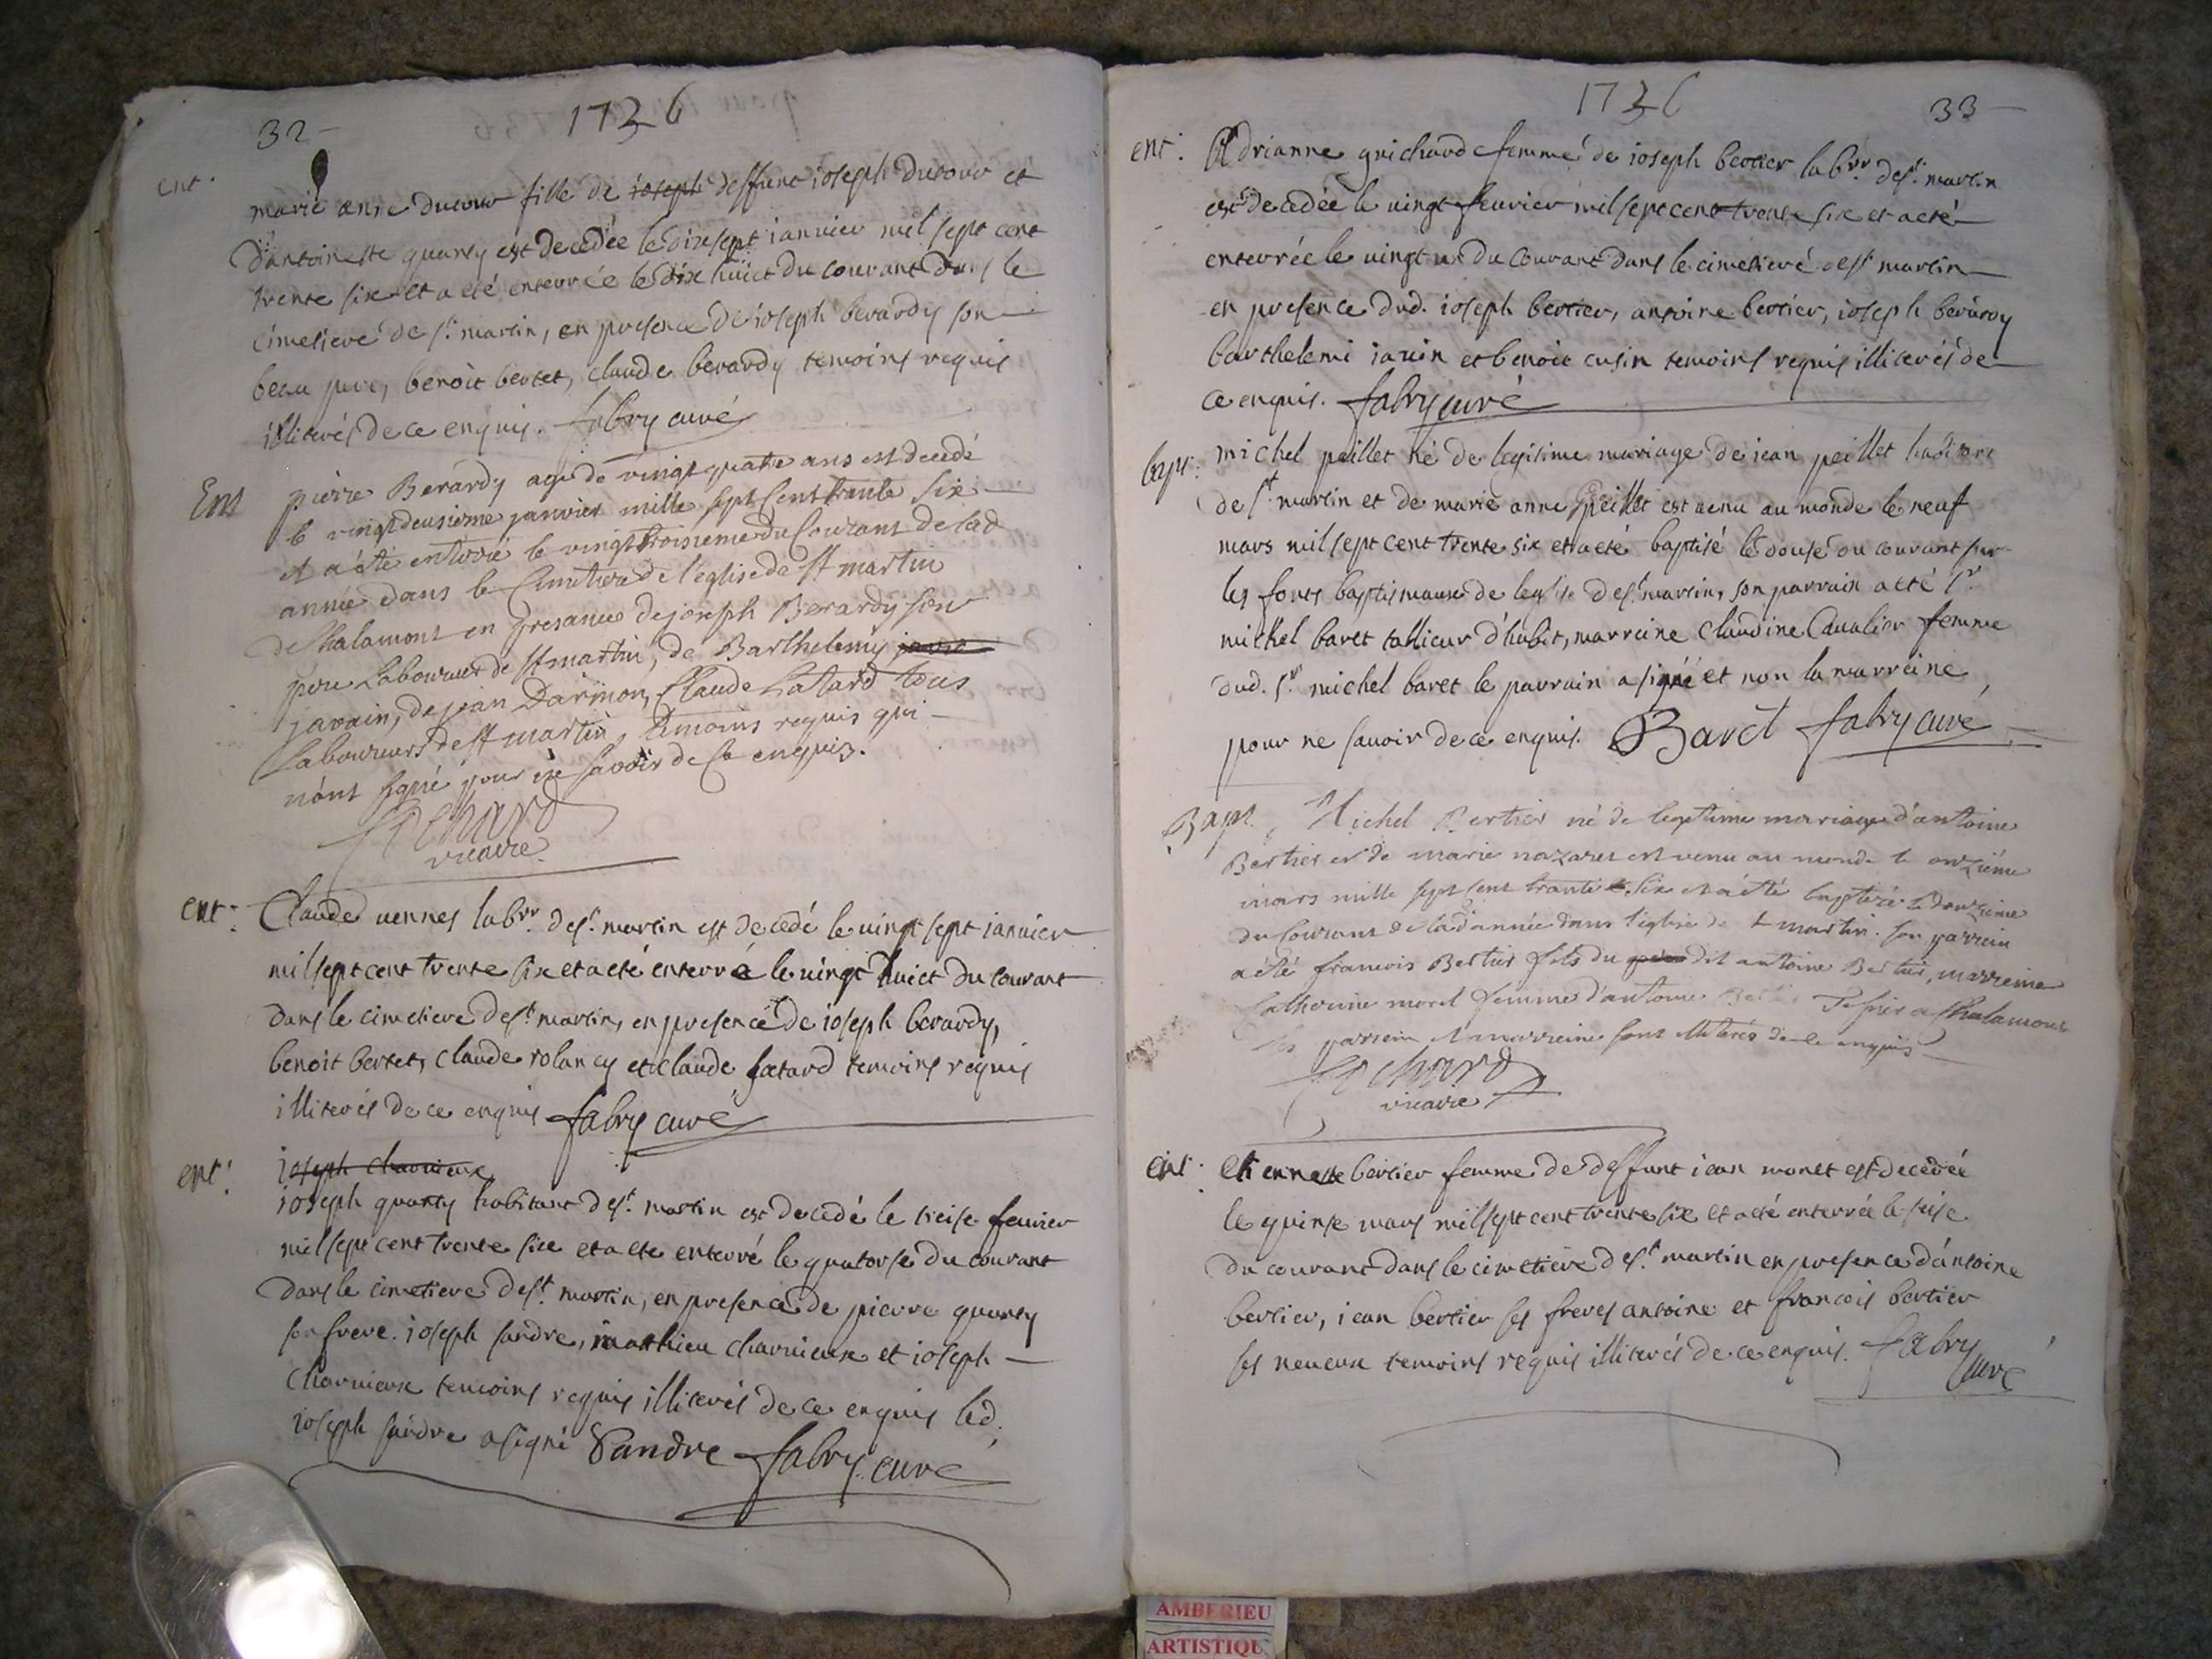 32
1736
ent.
marie anne ducour fille de joseph deffunt joseph ducour et
d'antoinette quarty est decedée le dixsept janvier mil sept cent
trente six et a eté enterrée le dix huict du courant dans le
cimetiere de st. martin, en presence de joseph berardy son
beau pere, benoit bertet, claude berardy temoins requis
illiterés de ce enquis. fabry curé
Ent
pierre Berardy agé de vingt quatre ans est decedé
le vingt deusieme janvier mille sept Cent trante Six
et a été enterré le vingt troisieme du Courant de lad
année dans le Cimetiere de l'eglise de st martin
de Chalamont en presance de joseph Berardy son
pere Laboureur de st martin, de Barthelemy
javain, de jean Darmon, Claude Latard tous
Laboureurs de st martin, temoins requis qui
n'ont signé pour ne savoir de ce enquis.
vicaire
ent:
Claude vennes labvr. de st. martin est decedé le vingt sept janvier
mil sept cent trente six et a eté enterré le vingt huict du courant
dans le cimetiere de st. martin, en presence de joseph berardy,
benoit bertet, claude rolancy et claude latard temoins requis
illiterés de ce enquis fabry curé
ent:
joseph charvieux
joseph quarty habitant de st. martin est decedé le treise fevrier
mil sept cent trente six et a eté enterré le quatorse du courant
dans le cimetiere de st. martin, en presence de pierre quarty
son frere. joseph sandre, mathieu charvieux et joseph
charvieux temoins requis illiterés de ce enquis led.
joseph sandre a signé Sandre fabry curé
1736
33
ent.
Adrianne guichard femme de joseph bertier labvr. de st. martin
est decedée le vingt fevrier mil sept cent trente six et a eté
enterrée le vingt un du courant dans le cimetiere de st. martin
en presence dud. joseph bertier, antoine bertier, joseph berardy
barthelemi javin et benoit cusin temoins requis illiterés de
ce enquis. fabry curé
bapt:
michel peillet né de legitime mariage de jean peillet habitant
de st. martin et de marie anne peillet est venu au monde le neuf
mars mil sept cent trente six et a eté baptisé le douse du courant sur
les fonts baptismaux de leglise de st. martin, son parrain a eté sr.
michel baret tallieur d'habit, marreine claudine Cavalier femme
dud. sr. michel baret le parrain a signé et non la marreine
pour ne savoir de ce enquis. Baret fabry curé
Bapt.
Michel Bertier né de legitime mariage d'antoine
Bertier et de marie nazaret est venu au monde le onzième
mars mille sept Cent trante Six et a été baptizé le douzieme
du Courant de lad année dans l'eglise de st martin. son parrein
a été francois Bertier fils du dit antoine Bertier, marreine
Catherine morel femme d'antoine a Chalamont
les parrein et marreine sont illiterés de ce enquis
vicaire
ent:
etiennette bertier femme de deffunt jean monet est decedée
le quinse mars mil sept cent trente six et a eté enterrée le seise
du courant dans le cimetiere de st. martin en presence d'antoine
bertier, jean bertier ses freres antoine et francois bertier
ses neveux temoins requis illiterés de ce enquis. fabry
curé
AMBERIEU
ARTISTIQU